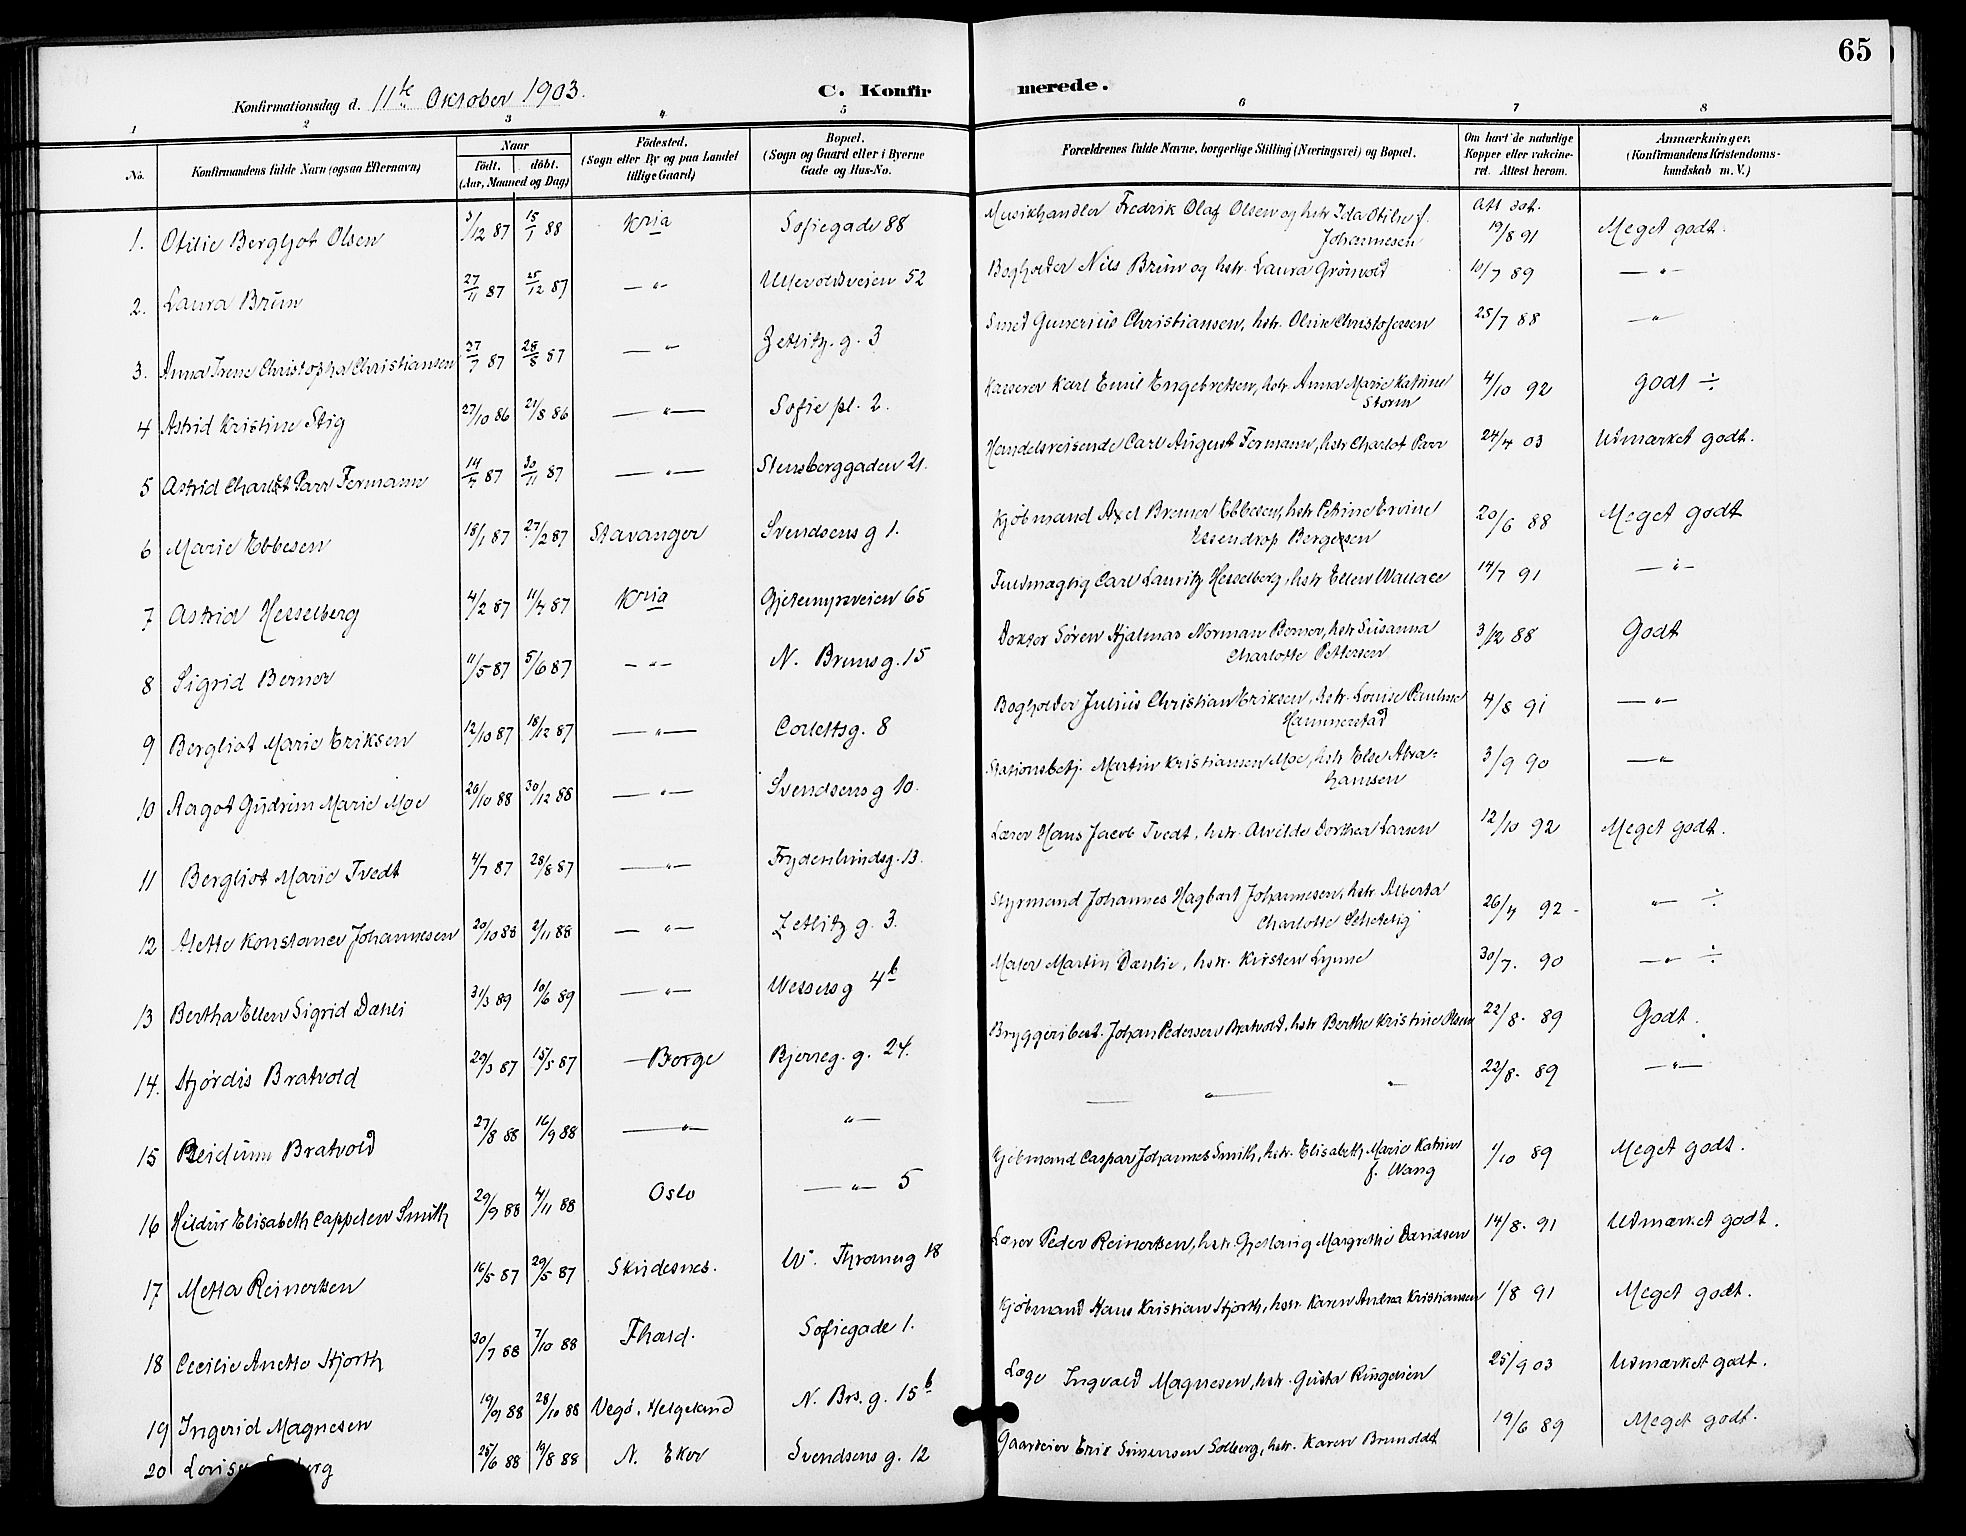 65
Konfirmationsdag d. 11te Oktober 1903.
C. Konfirmerede.
1 2 3 4 5 6 7 8
No. Konfirmandens fulde Navn (ogsaa Efternavn) Naar født. døbt. (Aar, Maaned og Dag) Fødested. (Sogn eller By og paa Landet tillige Gaard) Bopæl. (Sogn og Gaard eller i Byerne Gade og Hus-No. Forældrenes fulde Navne, borgerlige Stilling (Næringsvei) og Bopæl. Om havt de naturlige Kopper eller vaccineret. Attest herom. Anmærkninger. (Konfirmandens Kristendomskundskab m. V.)
1. Otilie Bergljot Olsen 3/12 87 15/1 88 Kria Sofiegade 88 Musikhandler Fredrik Olaf Olsen og hstr Ida Otilie f. Johannesen Att dat. 19/8 91 Meget godt.
2. Laura Brun 27/11 87 25/12 87 —"— Ullevoldsveien 52 Bogholder Nils Brun og hstr. Laura Grönvold 10/7 89 —"—
3. Anna Irene Christopha Christiansen 27/7 87 28/8 87 —"— Zetlitz. g. 3 Smed Gunerius Christiansen, hstr. Oline Christofersen 25/7 88 —"—
4 Astrid Kristine Stig 27/10 86 21/8 86 —"— Sofie pl. 2. Kasserer Karl Emil Engebretsen, hstr. Anna Marie Katrine Storm 4/10 92 godt ÷
5 Astrid Charlot Parr Fermann 14/7 87 30/11 87 —"— Stensberggaden 21. Handelsreisende Carl August Fermann, hstr Charlot Parr 24/4 03 Udmærket godt.
6 Marie Ebbesen 18/1 87 27/2 87 Stavanger Svendsens g 1. Kjöbmand Axel Bremer Ebbesen, hstr Petrine Ervine Essendrop Bergersen 20/6 88 Meget godt
7 Astrid Hesselberg 4/2 87 11/4 87 Kria Gjetemyrsveien 65 Fuldmægtig Carl Lauritz Hesselberg, hstr Ellen Wallace 14/7 91 —"—
8 Sigrid Berner 11/5 87 5/6 87 —"— N. Bruns g. 15 Doktor Sören Hjalmar Norman Berner, hstr Susanna Charlotte Pettersen 3/12 88 Godt
9 Bergliot Marie Eriksen 12/10 87 18/12 87 —"— Collettsg. 8 Bogholder Julius Christian Eriksen, hstr. Louise Pauline Hammerstad 4/8 91 —"—
10 Aagot Gudrun Marie Moe 26/10 88 30/12 88 —"— Svendsens g 10. Stationsbetj. Martin Kristiansen Moe, hstr Else Abrahamsen 3/9 90 —"—
11 Bergliot Marie Tvedt 4/7 87 28/8 87 —"— Frydenlundsg. 13. Lærer Hans Jacob Tvedt, hstr. Alvilde Dorthea Larsen 12/10 92 Meget godt.
12 Alette Konstance Johannesen 20/10 88 2/11 88 —"— Zetlitz g. 3. Styrmand Johannes Hagbart Johannesen, hstr Alberta Charlotte 26/4 92 - —"— ÷
13 Bertha Ellen Sigrid Dæhli 31/3 89 10/6 89 —"— Wessels g 4b Maler Martin Dæhlie, hstr. Kirsten Lynne 30/7. 90 —"— ÷
14. Hjørdis Bratvold 29/3 87 15/5 87 —Borge Bjerreg. g. 24. Bryggeribest. Johan Pedersen Bratvold, hstr Berthe Kristine Olsen 22/8. 89 Godt.
15 Reidunn Bratvold 27/8 88 16/9 88 —"— —"— —"— " 22/8. 89 —"—
16 Hildur Elisabeth Cappelen Smith 29/9 88 4/11 88 Oslo —"— 5 Kjöbmand Caspar Johannes Smith, hstr. Elisabeth Marie Katrine f. Wang 1/10 89 Meget godt.
17 Metta Reinertsen 16/5 87 29/5 87 Skudesnes. W. Thranesg 18 Lærer Peder Reinertsen, hstr. Margrethe Davidsen 14/8. 91 Udmærket godt.
18 Cecilie Anette Hjorth 30/7 88 7/10 88 Fhald. Sofiegade 1. Kjöbmand Hans Kristian Hjorth, hstr. Karen Andrea Kristiansen 1/8 91 Meget godt.
19 Ingerid Magnesen 19/9 88 28/10 88 Vegö, Helgeland N. Brs. g. 15b Læge Ingvald Magnesen, hstr. Gusta Ringdien 25/9 03 Udmærket godt.
20 Lovise 25/6 88 19/8 88 N. Eker Svendsens g. 12 Gaardeier Erik Simensen Solberg, hstr. Karen Brunoldt 19/6 89 Meget godt.